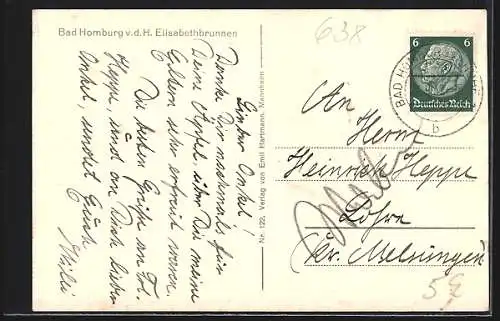 Bad Homburg v.d.H. Elisabethbrunnen
Lieber Onkel!
Danke Dir nochmals für
Deine Äpfel, über Die meine
Eltern sehr erfreut waren.
Die besten Grüße an Fr.
Heppe, und an Dich lieber
Onkel, sendet Euch
Willi
Nr. 122. Verlag von Emil Hartmann, Mannheim
638
6 6
Deutsches Reich
BAD
b
An
Herrn
Heinrich Heppe
Lohre
Kr. Melsungen